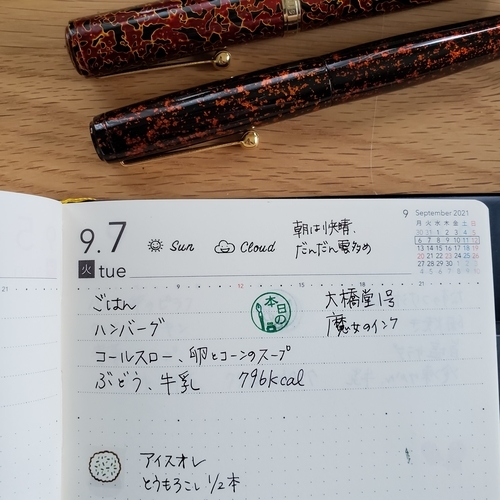 9.7
火 tue
Sun
Cloud
朝は快晴、
だんだん雲多め
9 September 2021
月 火 水 木 金 土 日
30 31 1 2 3 4 5
6 7 8 9 10 11 12
13 14 15 16 17 18 19
20 21 22 23 24 25 26
27 28 29 30
21
9 12 15 18 21
ごはん
ハンバーグ
コールスロー、卵とコーンのスープ
ぶどう、牛乳 796kcal
本日の
大橋堂1号
魔女のインク
アイスオレ
とうもろこし 1/2本